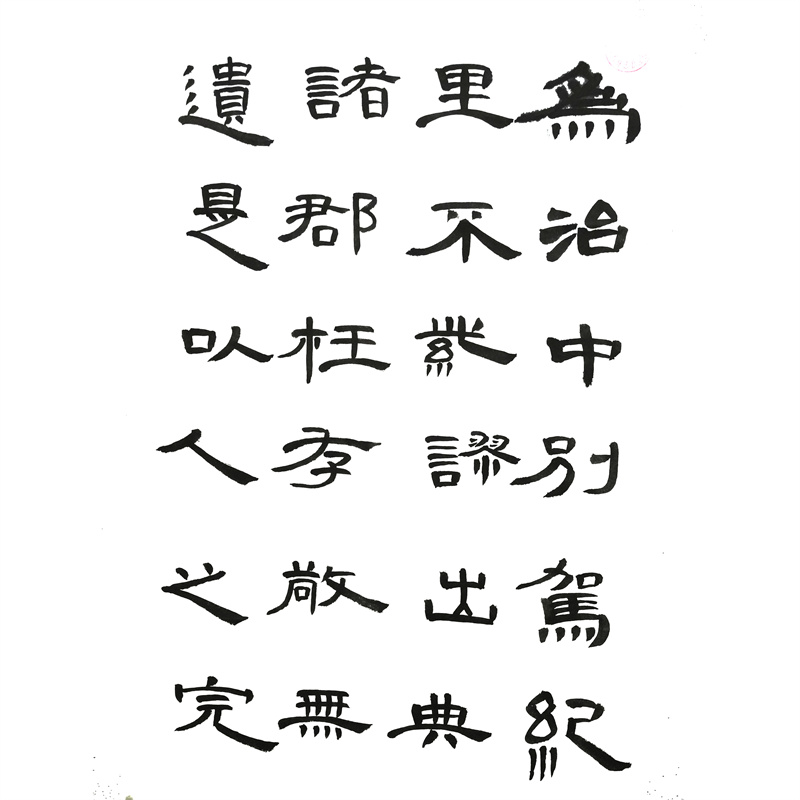 為治中別駕紀
里不紫謬出典
諸郡枉存敬無
遺是以人之完